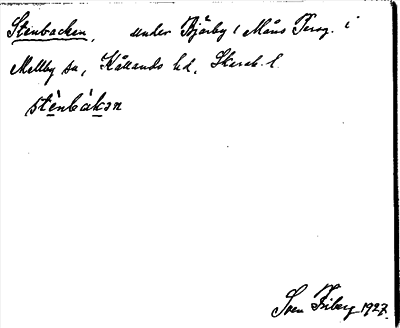 Stenbacken, under Bjärby 1 Måns Torsg. i
Mellby sn, Kållands hd, Skarab. l.
stènbàkan
Sven Friberg 1927.